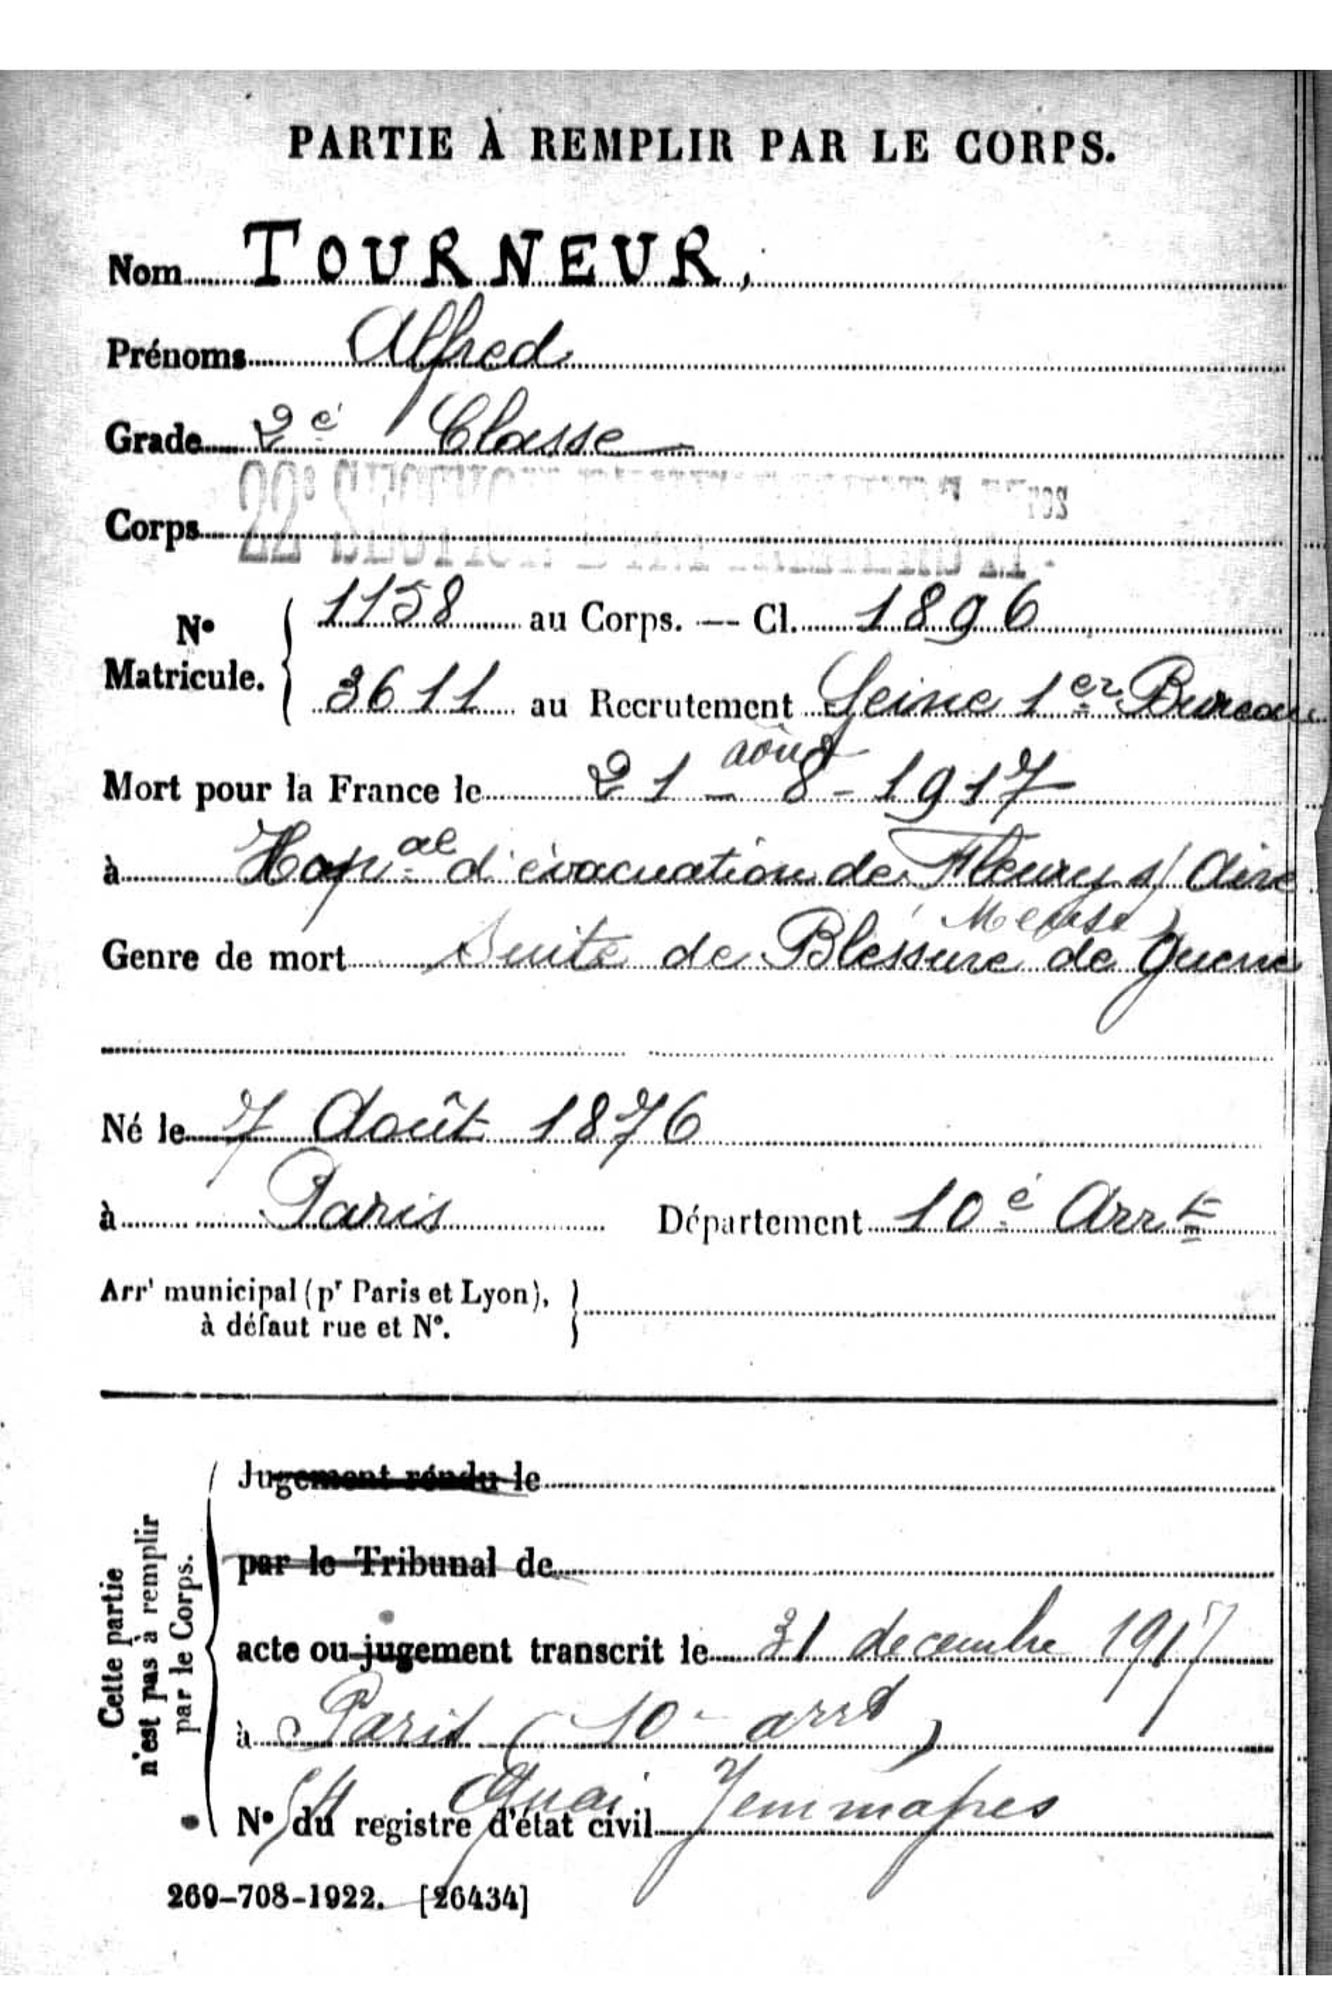 PARTIE À REMPLIR PAR LE CORPS.
Nom TOURNEUR,
Prénoms Alfred
Grade 2e Classe
22e SECTION
Corps
1158 au Corps. — Cl. 1896
N° Matricule.
3611 au Recrutement Seine 1er Bureau
août
Mort pour la France le 21 - 8 - 1917
à Hopal d'évacuation de Fleury s/ Aire
Meuse)
Genre de mort Suite de Blessure de guerre
Né le 7 Août 1876
à Paris Département 10e Arrt
Arrt municipal (pr Paris et Lyon),
à défaut rue et N°.
Cette partie
n'est pas à remplir
par le Corps.
Jugement rendu le
par le Tribunal de
acte ou jugement transcrit le 31 decembre 1917
à Paris (10e arrt)
54 Quai Jemmapes
N° du registre d'état civil
269-708-1922. [26434]